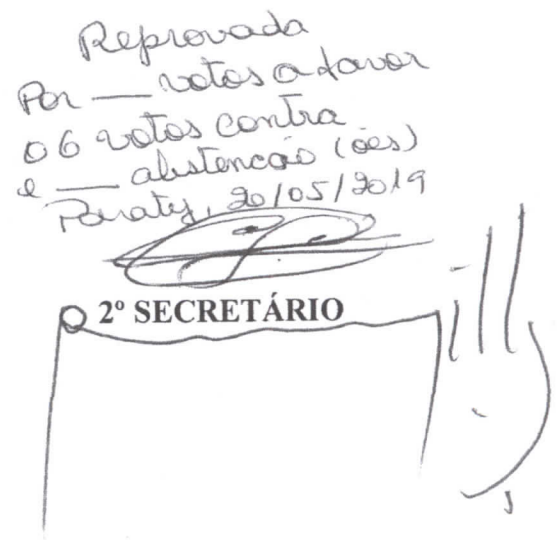 Reprovada
Por __ votos a favor
06 votos contra
e __ abstencão (ões)
Paraty, 20/05/2019
2º SECRETÁRIO